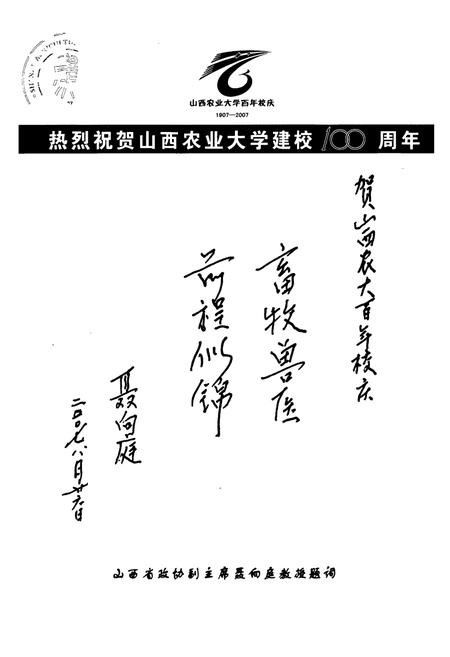 山西农业大学百年校庆
1907—2007
热烈祝贺山西农业大学建校100周年
贺山西农大百年校庆
畜牧兽医
前程似锦
聂向庭
二〇〇七、八月廿六日
山西省政协副主席聂向庭教授题词